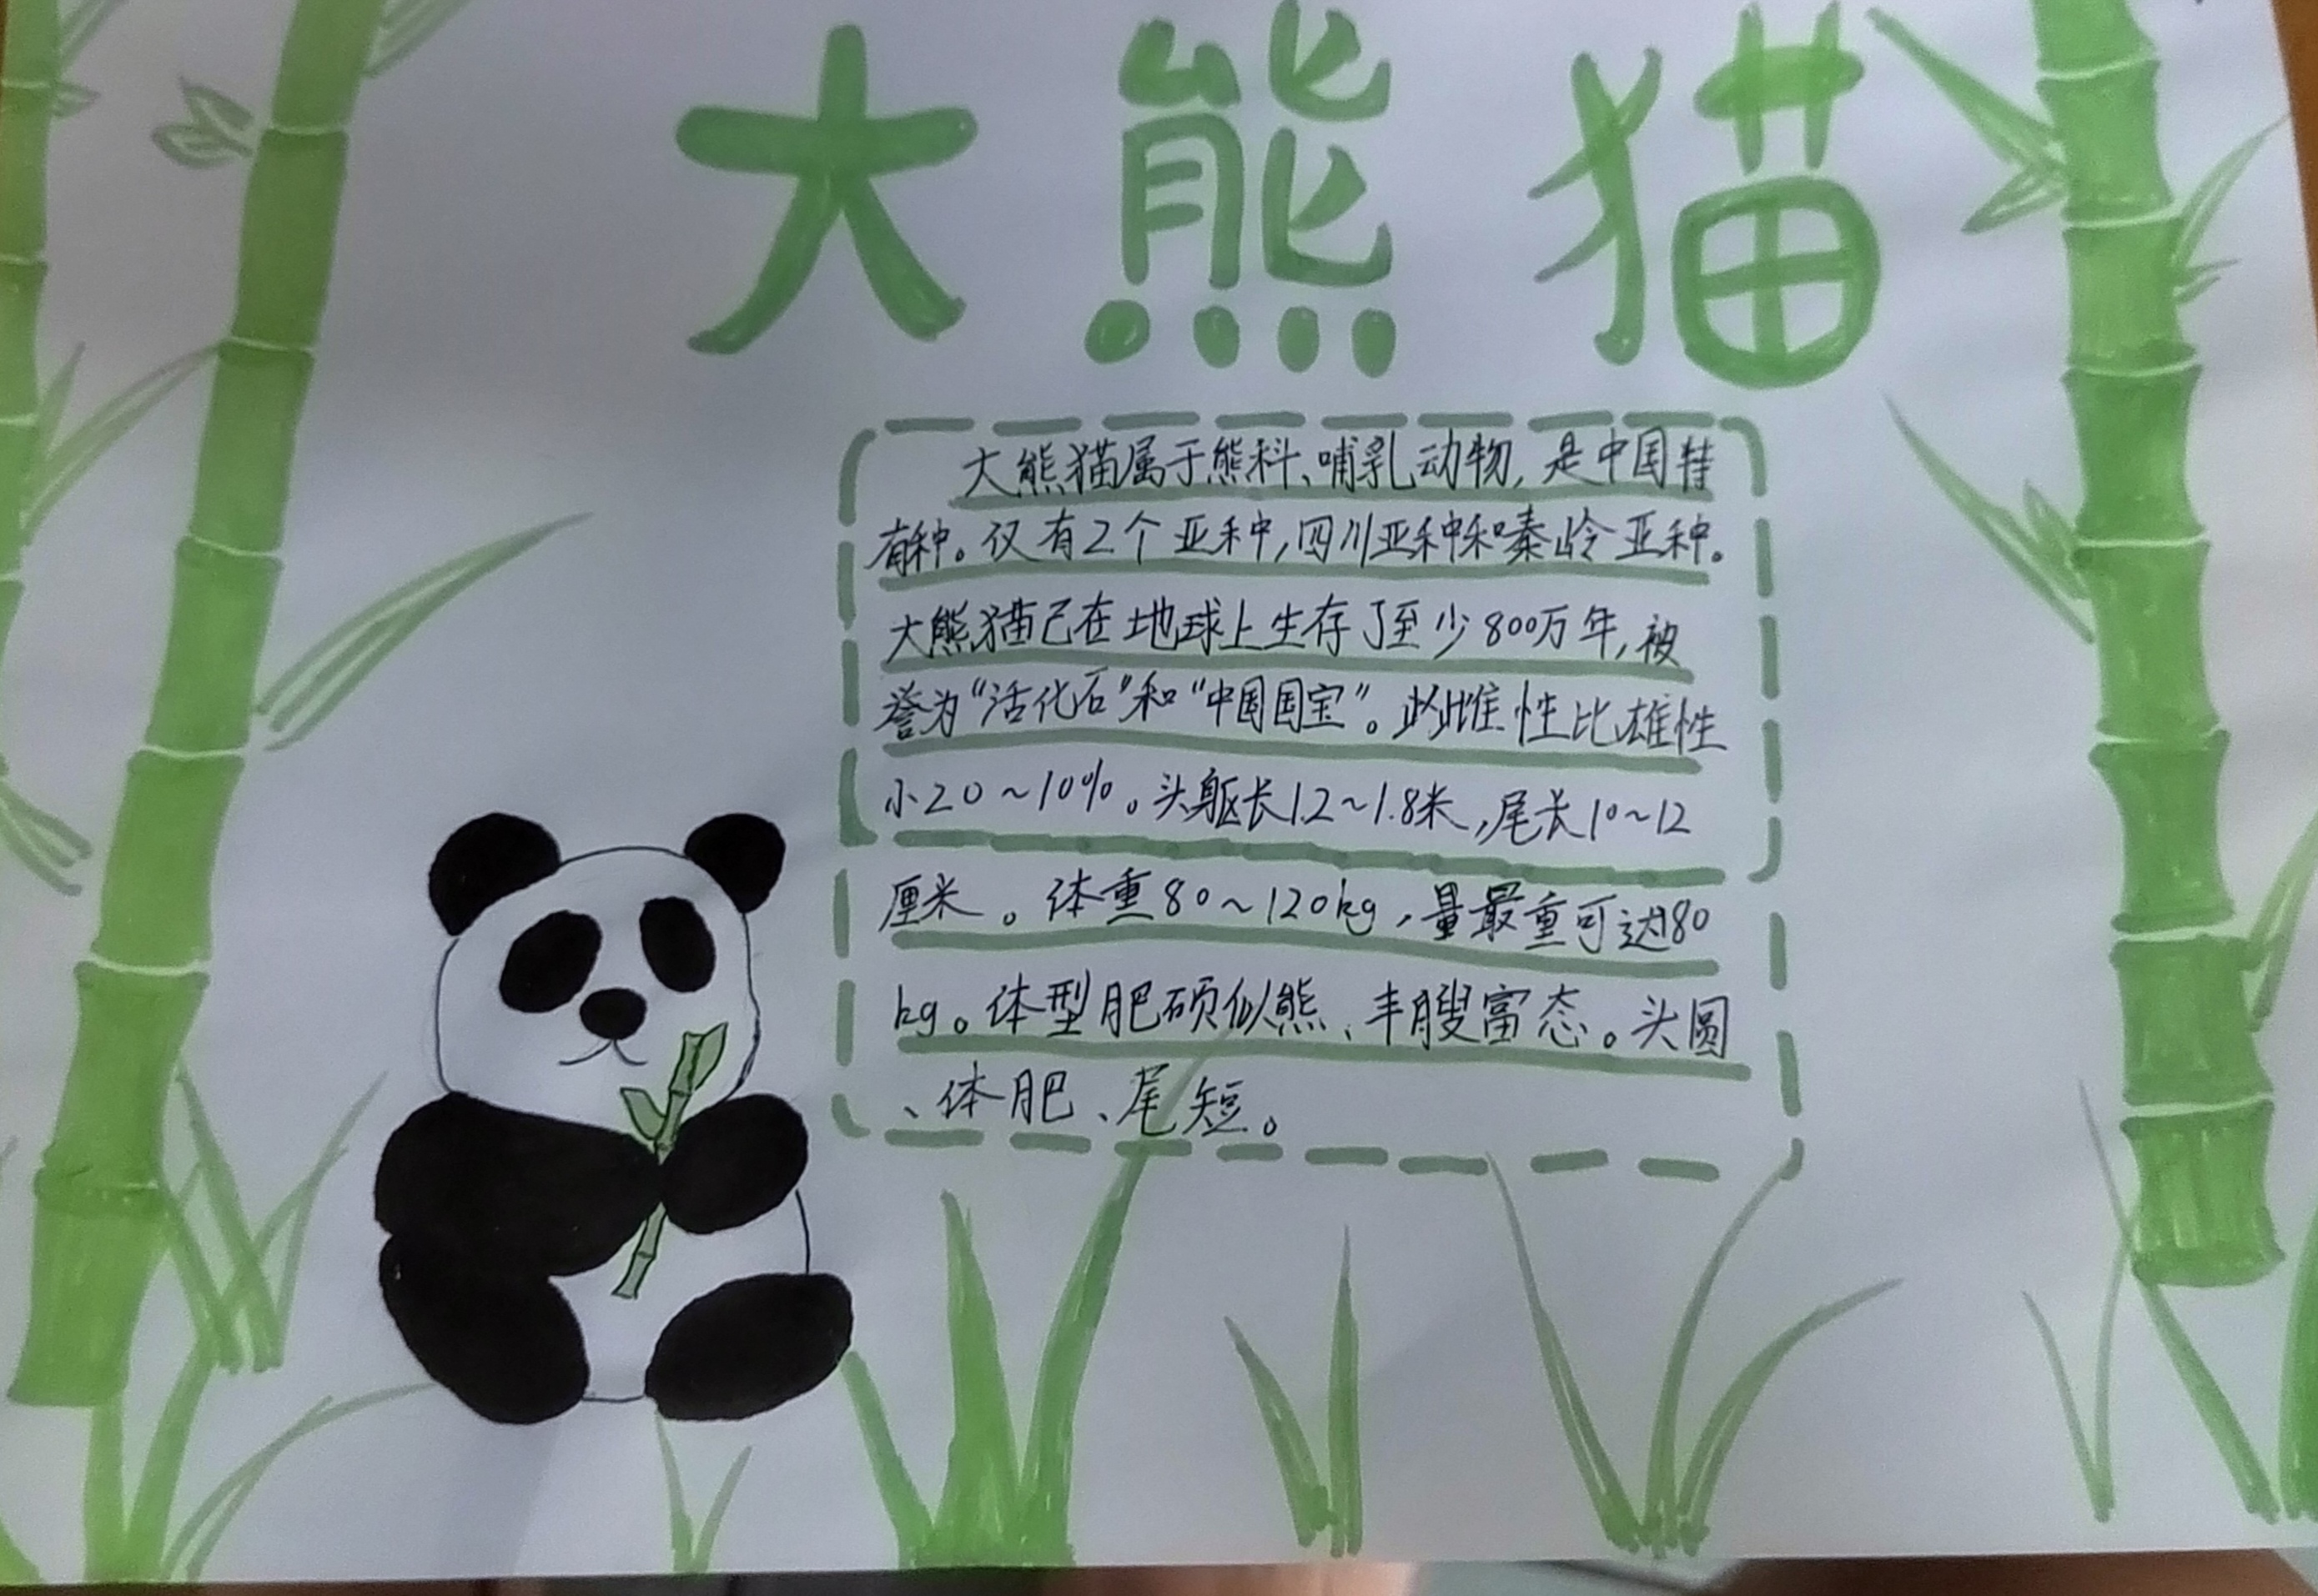 大熊猫
大熊猫属于熊科、哺乳动物,是中国特
有种。仅有2个亚种,四川亚种和秦岭亚种。
大熊猫已在地球上生存了至少800万年,被
誉为“活化石”和“中国国宝”。雌性比雄性
小20~10%。头躯长1.2~1.8米,尾长10~12
厘米。体重80~120kg,量最重可达180
kg。体型肥硕似熊、丰腴富态。头圆
、体肥、尾短。